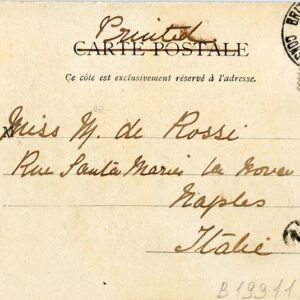 Printed
CARTE POSTALE
Ce côté est exclusivement réservé à l'adresse.
Miss M. de Rossi
Rue Santa Maria la Nova
Naples
Italie
B19911